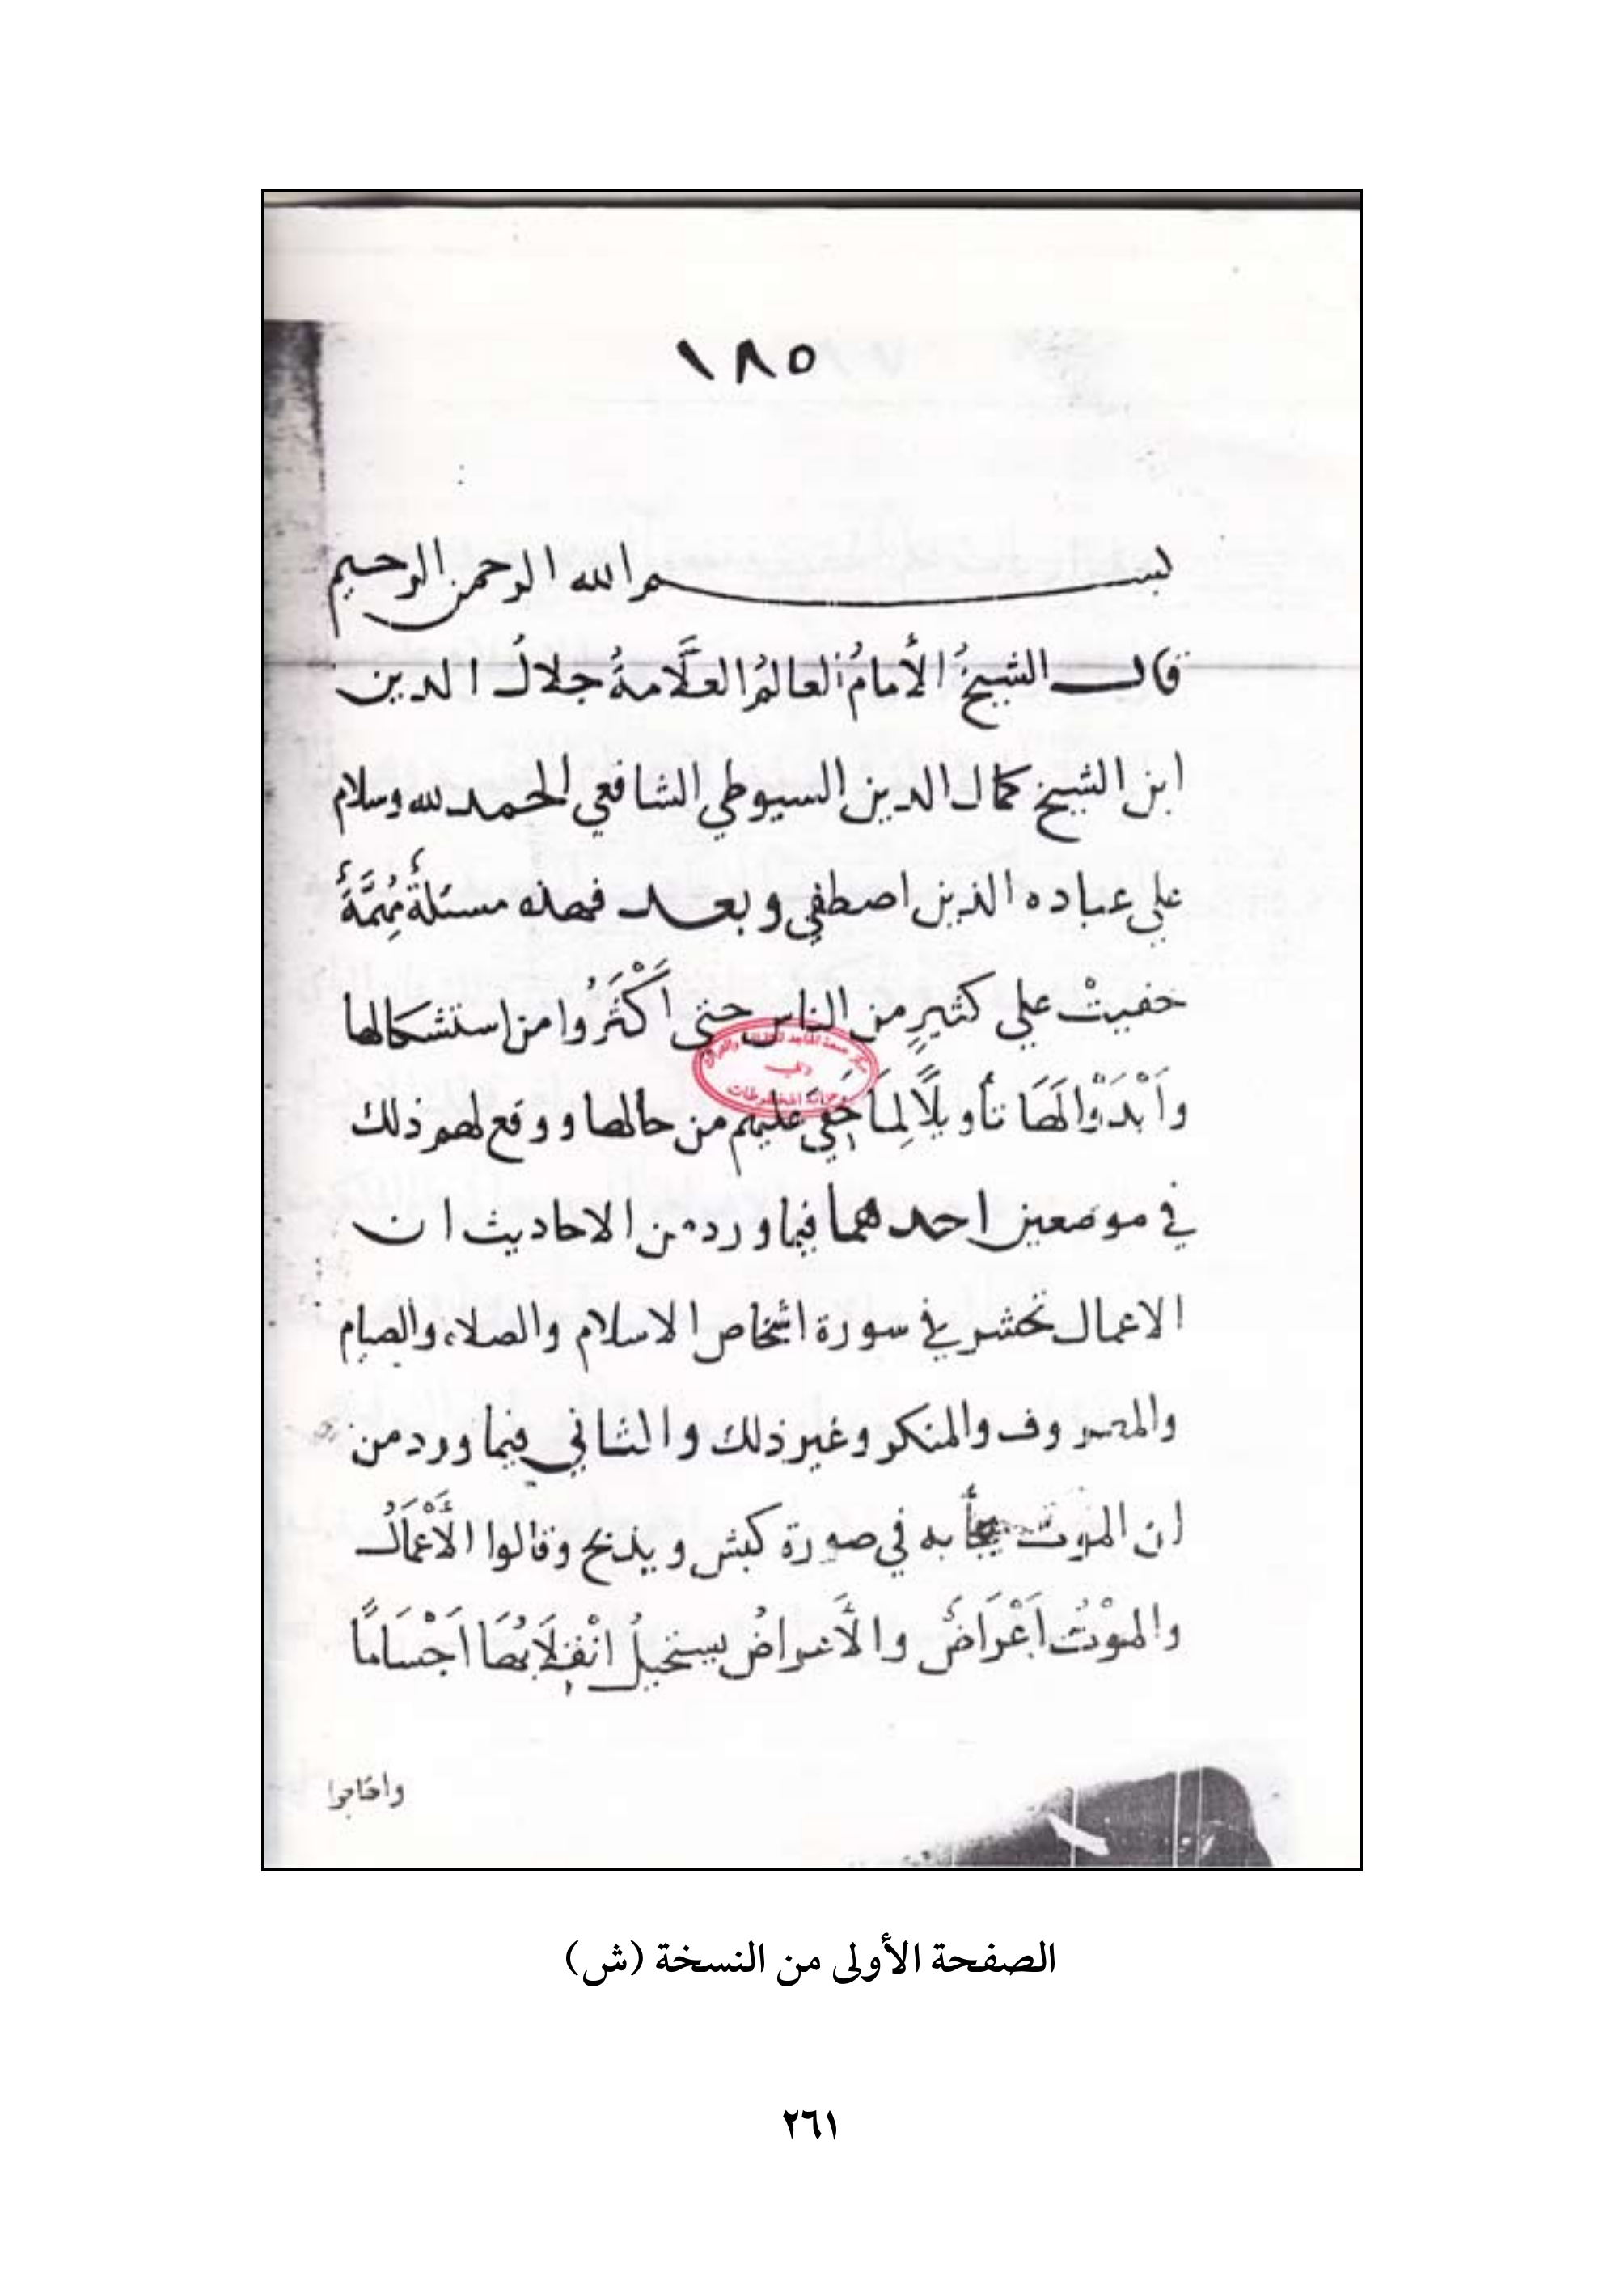 ١٨٥
بسم الله الرحمن الرحيم
قال الشيخُ الأمامُ العالمُ العلَّامةُ جلالُ الدين
ابن الشيخ كمال الدين السيوطي الشافعي الحمد لله وسلام
علي عباده الذين اصطفي وبعد فهذه مسئلةٌ مُهِمَّةٌ
خفيتْ علي كثيرٍ من الناس حتي أَكْثَرُوا من استشكالها
وَاَبْدَوْا لَهَا تأويلًا لِمَا خَفِيَ عَليهم من حالها ووقع لهم ذلك
في موضعين احدهما فيما ورد من الاحاديث ان
الاعمال تحشر في سورة اشخاص الاسلام والصلاه والصيام
والمعروف والمنكر وغير ذلك والثاني فيما ورد من
ان الموت يجأ به في صورة كبش ويذبح وقالوا الأَعْمَالُ
والموْتُ اَعْرَاضٌ والأَعراضُ يستحيلُ انْقِلَابُهَا اَجْسَامًا
واحتاجوا
مركز جمعة الماجد للثقافة والتراث
دبي
الصفحة الأولى من النسخة (ش)
٢٦١